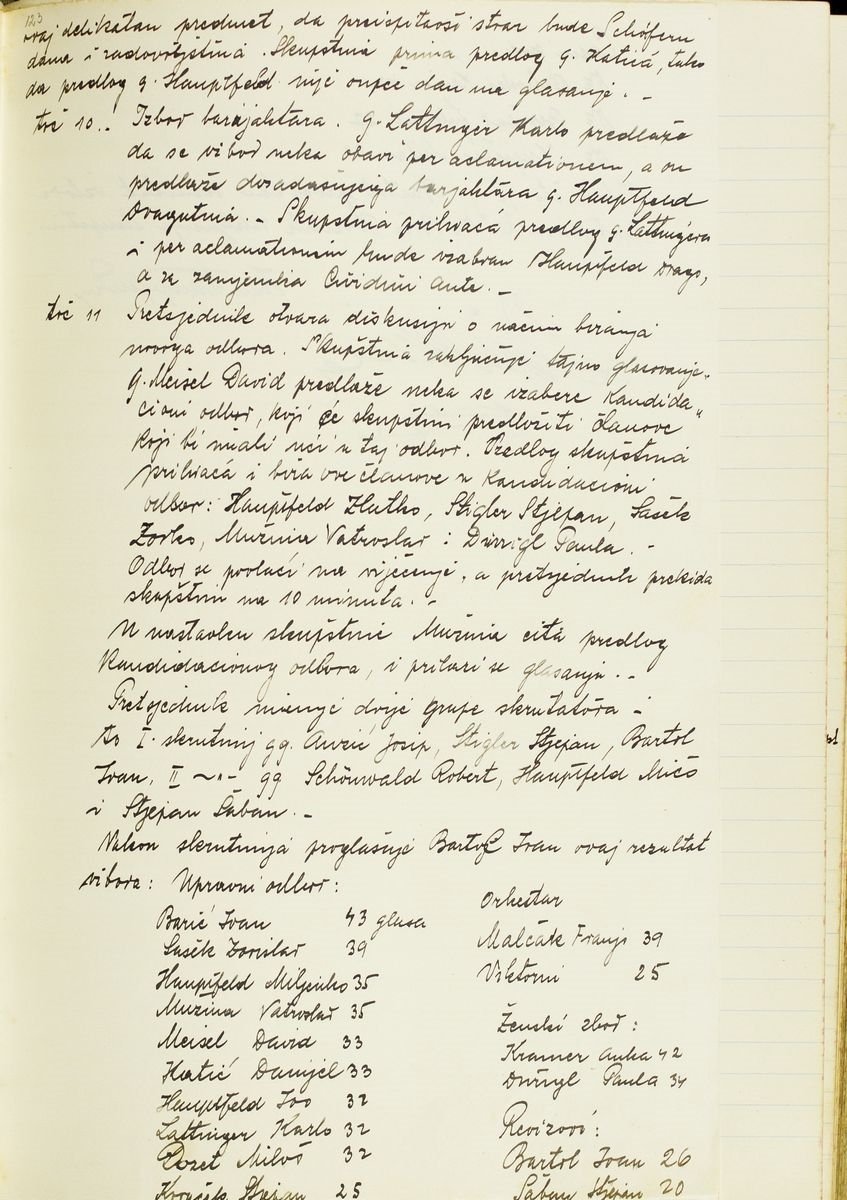 123
ovaj delikatan predmet, da preispitavši stvar bude Schöfern
dana i zadovoljština. Skupština prima predlog g. Katića, tako
da predlog g. Hauptfeld nije onpće dan na glasanje. -
toč 10.- Izbor barajaktara. g. Lattinger Karlo predlaže
da se vibor neka obavi per aclamationem, a on
predlaže dosadašnjega barjaktara g. Hauptfeld
Dragutina. - Skupština prihvaća predlog g. Lattingera
i per aclamationem bude izabran Hauptfeld Drago,
a za zamjenika Cividini Ante. -
toč 11 Pretsjednik otvara diskusiju o načinu biranja
novoga odbora. Skupština zaključuje tajno glasovanje.
g. Meisel David predlaže neka se izabere Kandida"
cioni odbor, koji će skupštini predložiti članove
koji bi imali ući u taj odbor. Predlog skupština
prihvaća i bira ove članove u Kandidacioni
odbor: Hauptfeld Zlatko, Stigler Stjepan, Sašek
Zorko, Mužina Vatroslav i Dürrigl Paula. -
Odbor se povlači na vijećanje, a pretsjednik prekida
skupštinu na 10 minuta. -
U nastavku skupštine Mužina čita predlog
Kandidacionog odbora, i prilazi se glasanju. -
Pretsjednik imenuje dvije grupe skrutatora i
to I. skrutinij gg. Avrić Josip, Stigler Stjepan, Bartol
Ivan, II ~"~ gg Schönwald Robert, Hauptfeld Mićo
i Stjepan Šaban. -
Nakon skrutinija proglašuje Bartol Ivan ovaj rezultat
vibora: Upravni odbor:
Barić Ivan 43 glasa
Sašek Zorislav 39
Hauptfeld Miljenko 35
Mužina Vatroslav 35
Meisel David 33
Katić Danijel 33
Hauptfeld Ivo 32
Lattinger Karlo 32
Dozet Miloš 32
Stjepan 25
Orkestar
Malčák Franjo 39
Viktorni 25
Ženski zbor:
Kramer Anka 42
Dürrigl Paula 34
Revizori:
Bartol Ivan 26
Šaban Stjepan 20